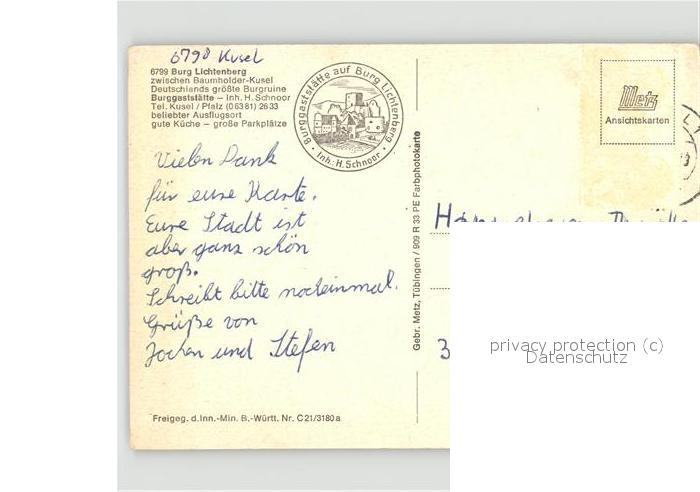 6798 Kusel
6799 Burg Lichtenberg
zwischen Baumholder-Kusel
Deutschlands größte Burgruine
Burggaststätte – Inh. H. Schnoor
Tel. Kusel / Pfalz (06381) 2633
beliebter Ausflugsort
gute Küche – große Parkplätze
Burggaststätte auf Burg Lichtenberg
· Inh.: H. Schnoor ·
Vielen Dank
für eure Karte.
Eure Stadt ist
aber ganz schön
groß.
Schreibt bitte nocheinmal.
Grüße von
Jochen und Stefen
Freigeg. d. Inn.-Min. B.-Württ. Nr. C21/3180a
Gebr. Metz, Tübingen / 909 R 33 PE Farbphotokarte
Metz
Ansichtskarten
3
privacy protection (c)
Datenschutz